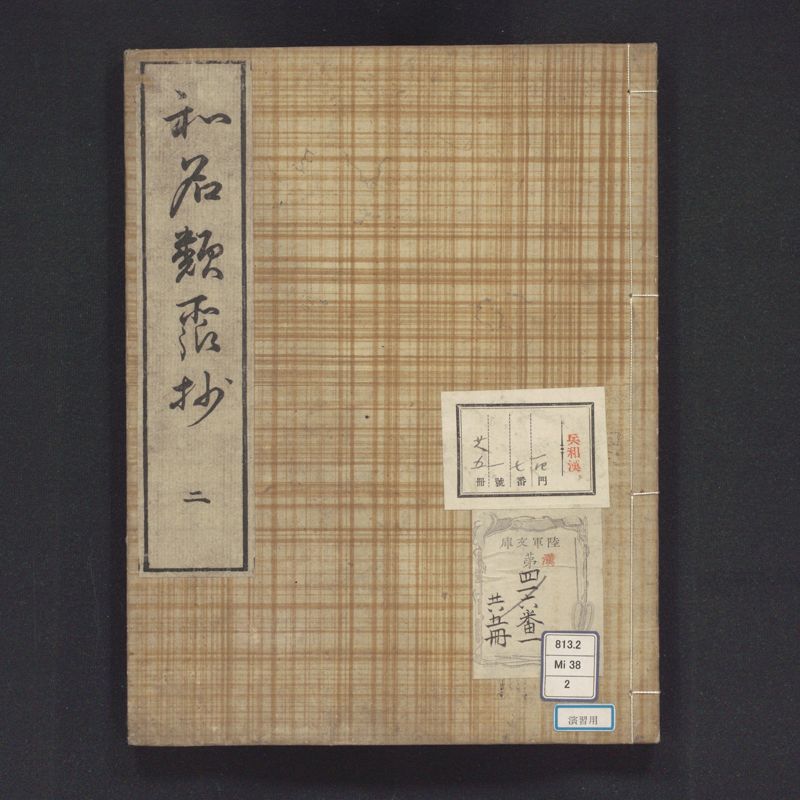 和名類聚抄
二
兵和漢
門
番
號
冊
七
共
五
陸軍文庫
漢
第
四一六番一
共五冊
813.2
Mi 38
2
演習用